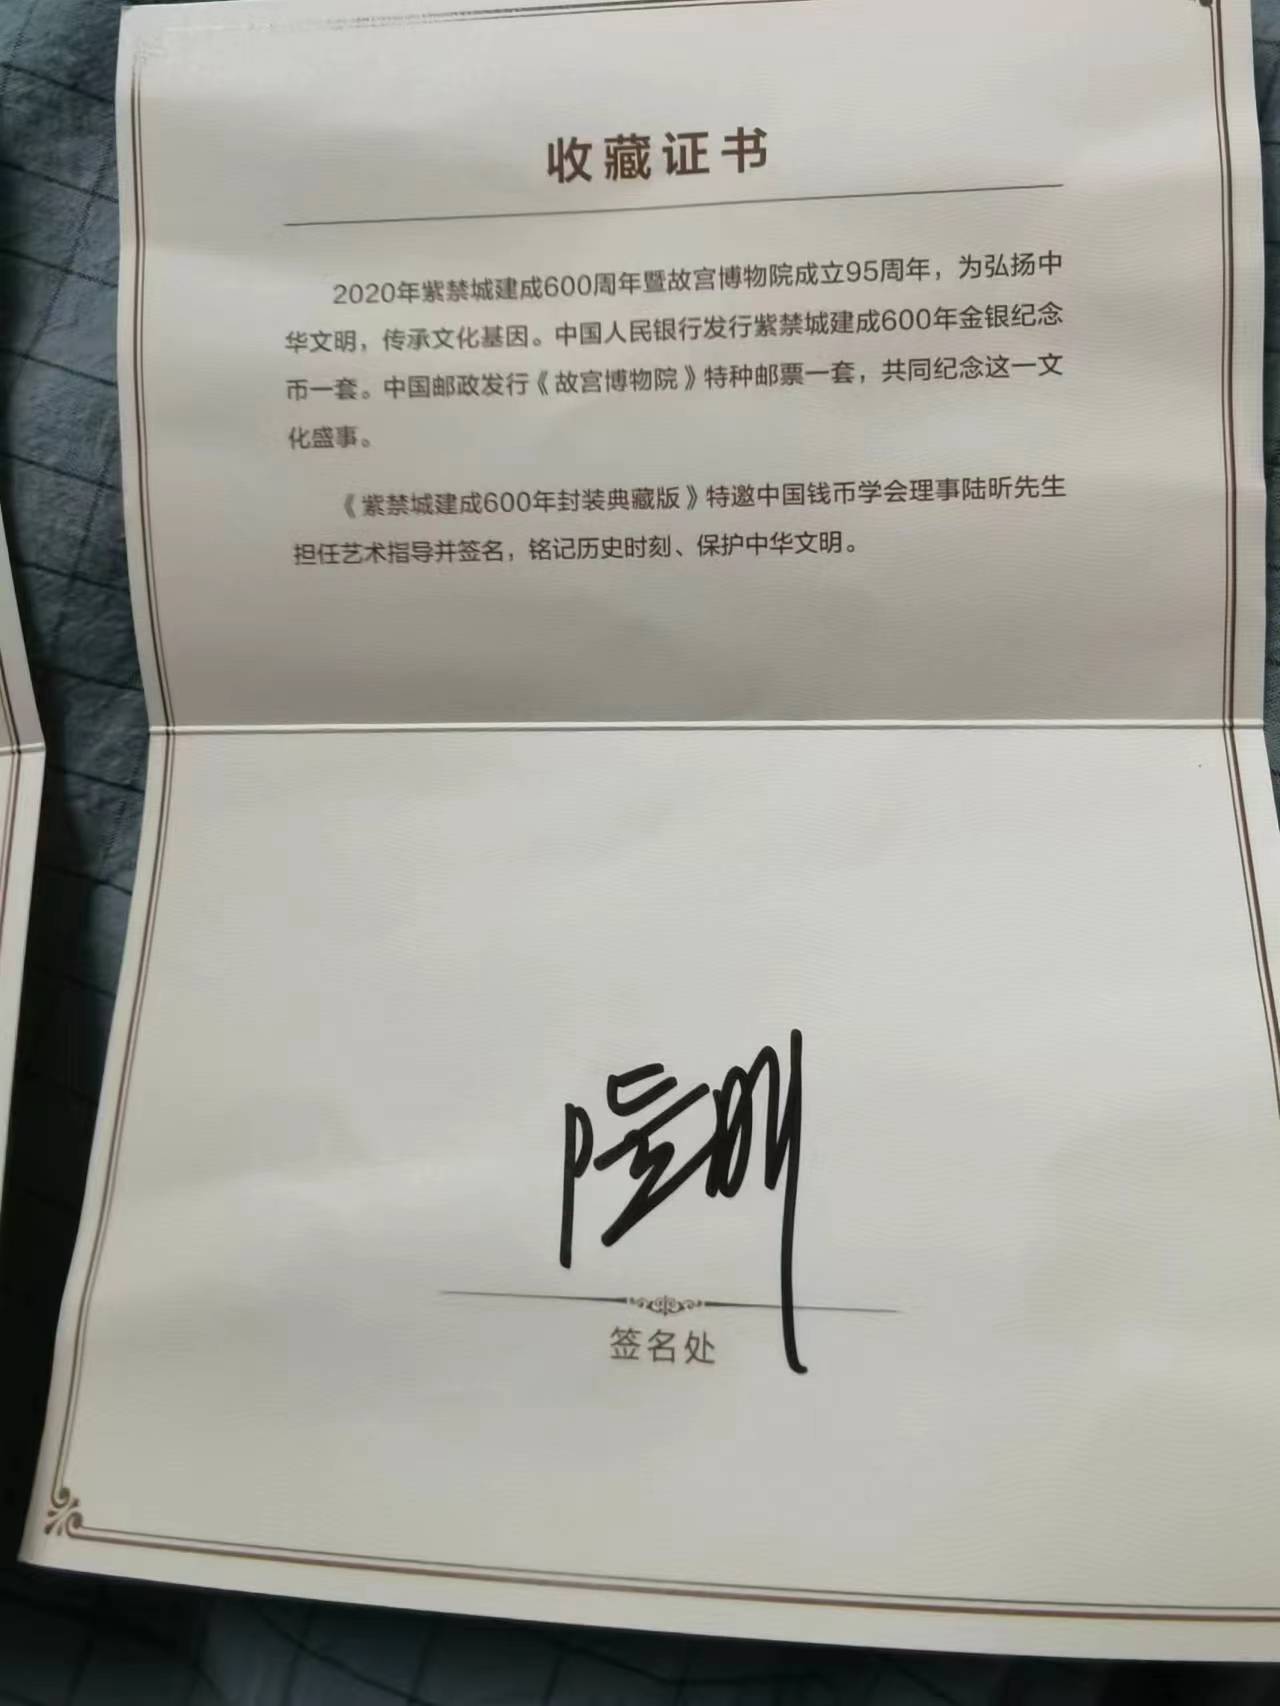 收藏证书
2020年紫禁城建成600周年暨故宫博物院成立95周年，为弘扬中
华文明，传承文化基因。中国人民银行发行紫禁城建成600年金银纪念
币一套。中国邮政发行《故宫博物院》特种邮票一套，共同纪念这一文
化盛事。
《紫禁城建成600年封装典藏版》特邀中国钱币学会理事陆昕先生
担任艺术指导并签名，铭记历史时刻、保护中华文明。
陆昕
签名处